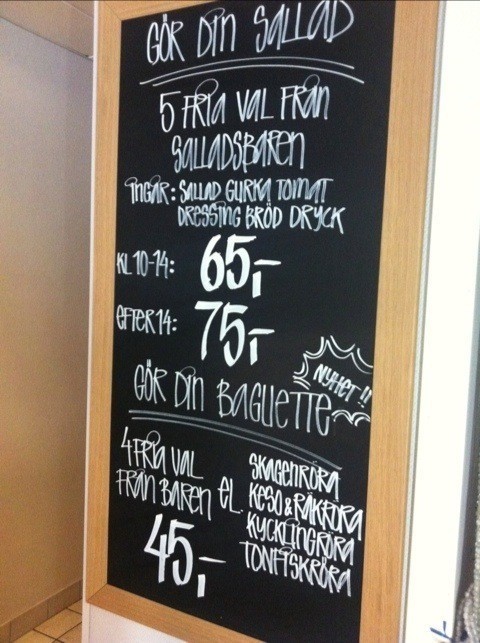 GÖR DIN SALLAD
5 FRIA VAL FRÅN
SALLADSBAREN
INGÅR: SALLAD GURKA TOMAT
DRESSING BRÖD DRYCK
KL 10-14: 65,-
EFTER 14: 75,-
NYHET!!
GÖR DIN BAGUETTE
4 FRIA VAL
FRÅN BAREN EL.
SKAGENRÖRA
KESO & RÄKRÖRA
KYCKLINGRÖRA
TONFISKRÖRA
45,-